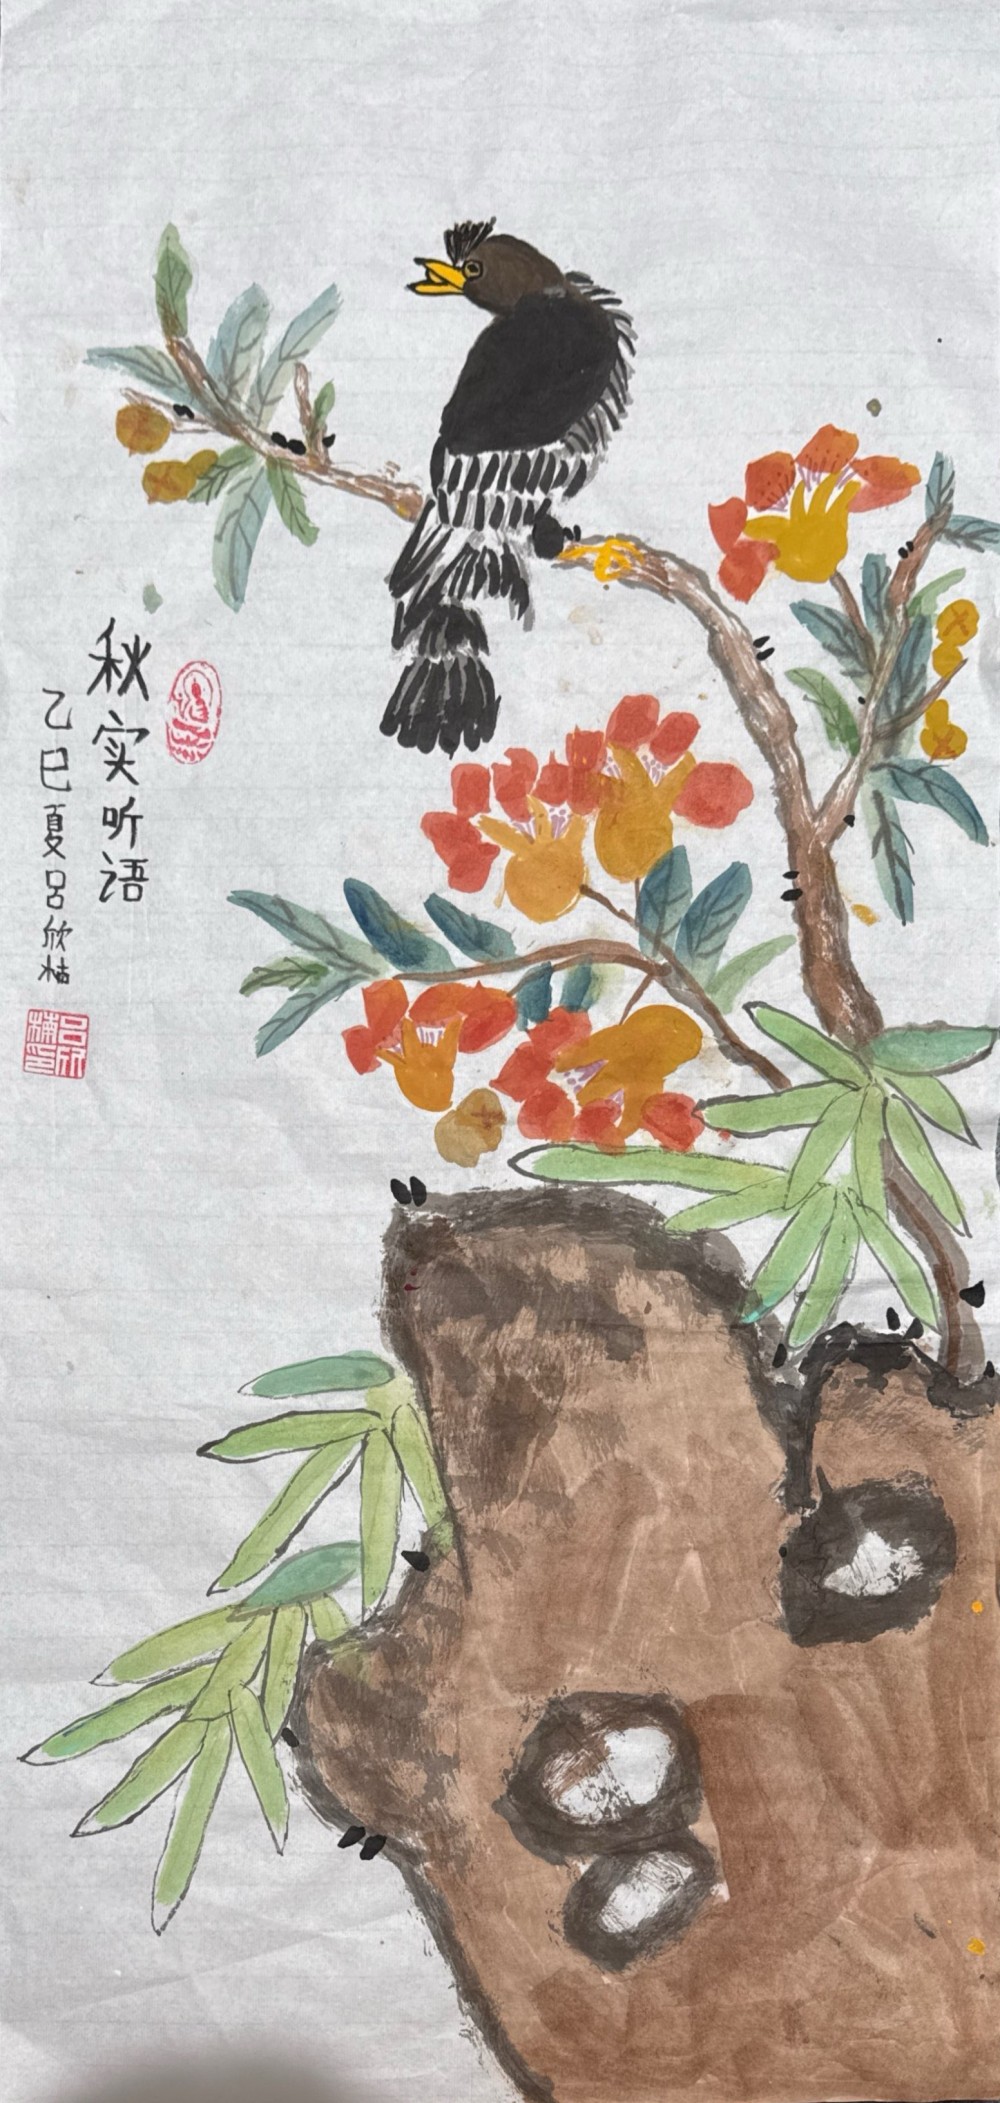 秋实听语
乙巳夏吕欣楠
吕欣楠印